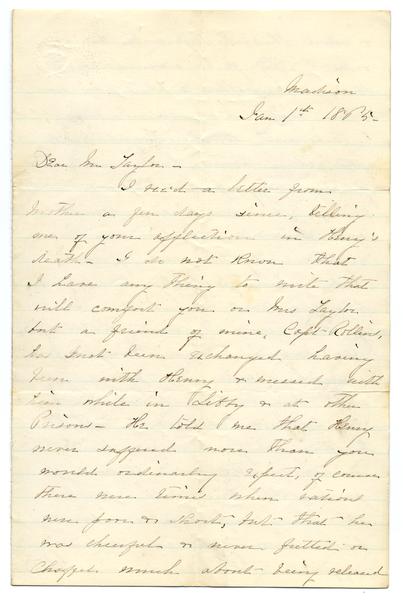 Madison
Jan 1st 1865-
Dear Mr Taylor -
I rec'd a letter from
Mother a few days since, telling
me of your affliction in Henry's
death - I do not know that
I have any thing to write that
will comfort you or Mrs Taylor
but a friend of mine, Capt Rollins,
has just been exchanged having
been with Henry & messed with
him while in Libby & at other
Prisons - He told me that Henry
never suffered more than you
would ordinarily expect, of course
there were times when rations
were poor & short, but that he
was cheerful & never fretted or
chaffed much about being released